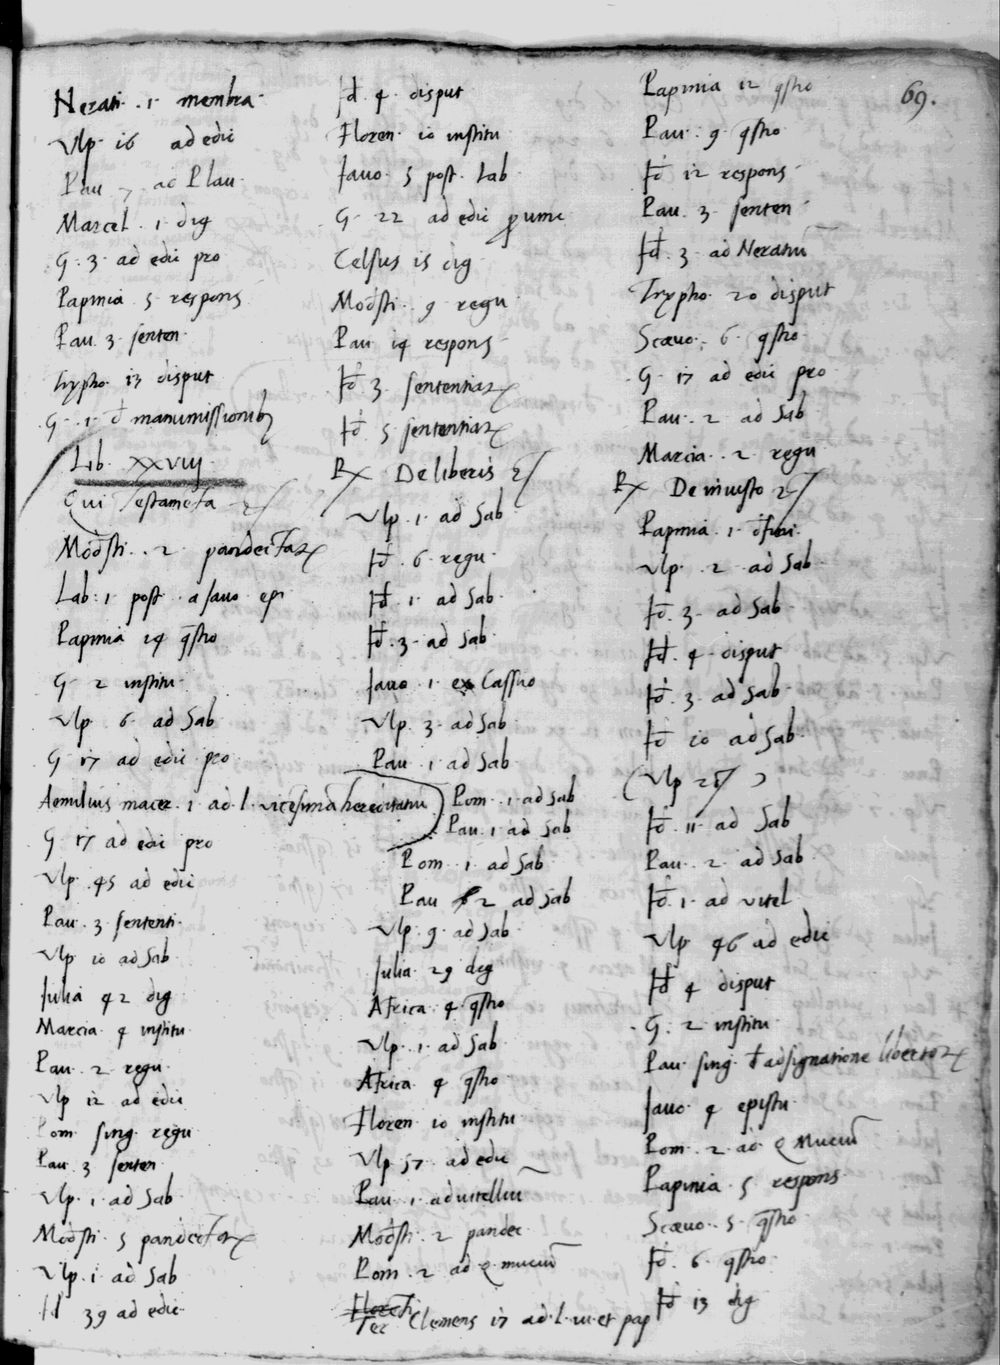 69.
Nerati. 1. membra
Vlp. 16 ad edic
Pau 7. ad Plau.
Marcel. 1. dig
G. 3. ad edic pro
Papinia 5 respons
Pau. 3. senten.
Trypho. 13 disput
G. 1. d manumissionib
Lib. XXVIII
Qui Testameta
Modsti. 2. pandectar
Lab. 1 post. a Iauo epi
Papinia 14 qstio
G. 2 institu.
Vlp. 6. ad Sab
G 17 ad edic pro
Aemilius macer. 1. ad. l. vicesima hereditatiu
G. 17 ad edic pro
Vlp. 45 ad edic
Pau. 3. sententi.
Vlp. 10 ad Sab.
Iulia 42 dig
Marcia. 4 institu
Pau. 2 regu.
Vlp 12 ad edic
Pom sing. regu
Pau. 3 senten
Vlp. 1. ad Sab
Modsti. 5 pandectar
Vlp. 1. ad Sab
Id 39 ad edic
Id. 4. disput
Floren. 10 institu
Iauo. 5 post. Lab
G. 22 ad edic
Celsus 15 dig
Modsti. 9 regu
Pau 14 respons
Id 3. sententiar
Id. 5 sententiar
Rx De liberis
Vlp. 1. ad Sab
Id. 6 regu.
Id. 1. ad Sab
Id. 3. ad Sab
Iauo. 1. ex Cassio
Vlp. 3. ad Sab
Pau. 1. ad Sab
Pom. 1. ad Sab
Pau. 1. ad Sab
Pom. 1. ad Sab
Pau 2 ad Sab
Vlp. 9. ad Sab
Iulia. 29 dig
Africa. 4. qstio
Vlp. 1. ad Sab
Africa 4 qstio
Floren. 10 institu
Vlp 57 ad edic
Pau. 1. ad vitelliu
Modsti. 2 pandec
Pom. 2 ad Q muciu
Ter Clemens 17 ad. l. iu. et pap
Papinia 12 qstio
Pau. 9. qstio
Id 12 respons
Pau. 3. senten
Id. 3. ad Neratiu
Trypho. 20 disput
Scaeuo. 6. qstio
G. 17 ad edic pro
Pau. 2 ad Sab
Marcia. 2 regu
Rx De iniusto
Papinia. 1. dfini.
Vlp. 2. ad Sab
Id. 3. ad Sab
Id. 4. disput
Id. 3. ad Sab.
Id 10 ad Sab.
(Vlp )
Id. 11. ad Sab
Pau. 2. ad Sab
Id. 1. ad vitel
Vlp 46 ad edic
Id 4 disput
G. 2 institu
Pau sing. d adsignatione libertor
Iauo. 4 epistu
Pom. 2 ad Q Muciu
Papinia. 5 respons
Scaeuo. 5. qstio
Id. 6. qstio
Id 13 dig